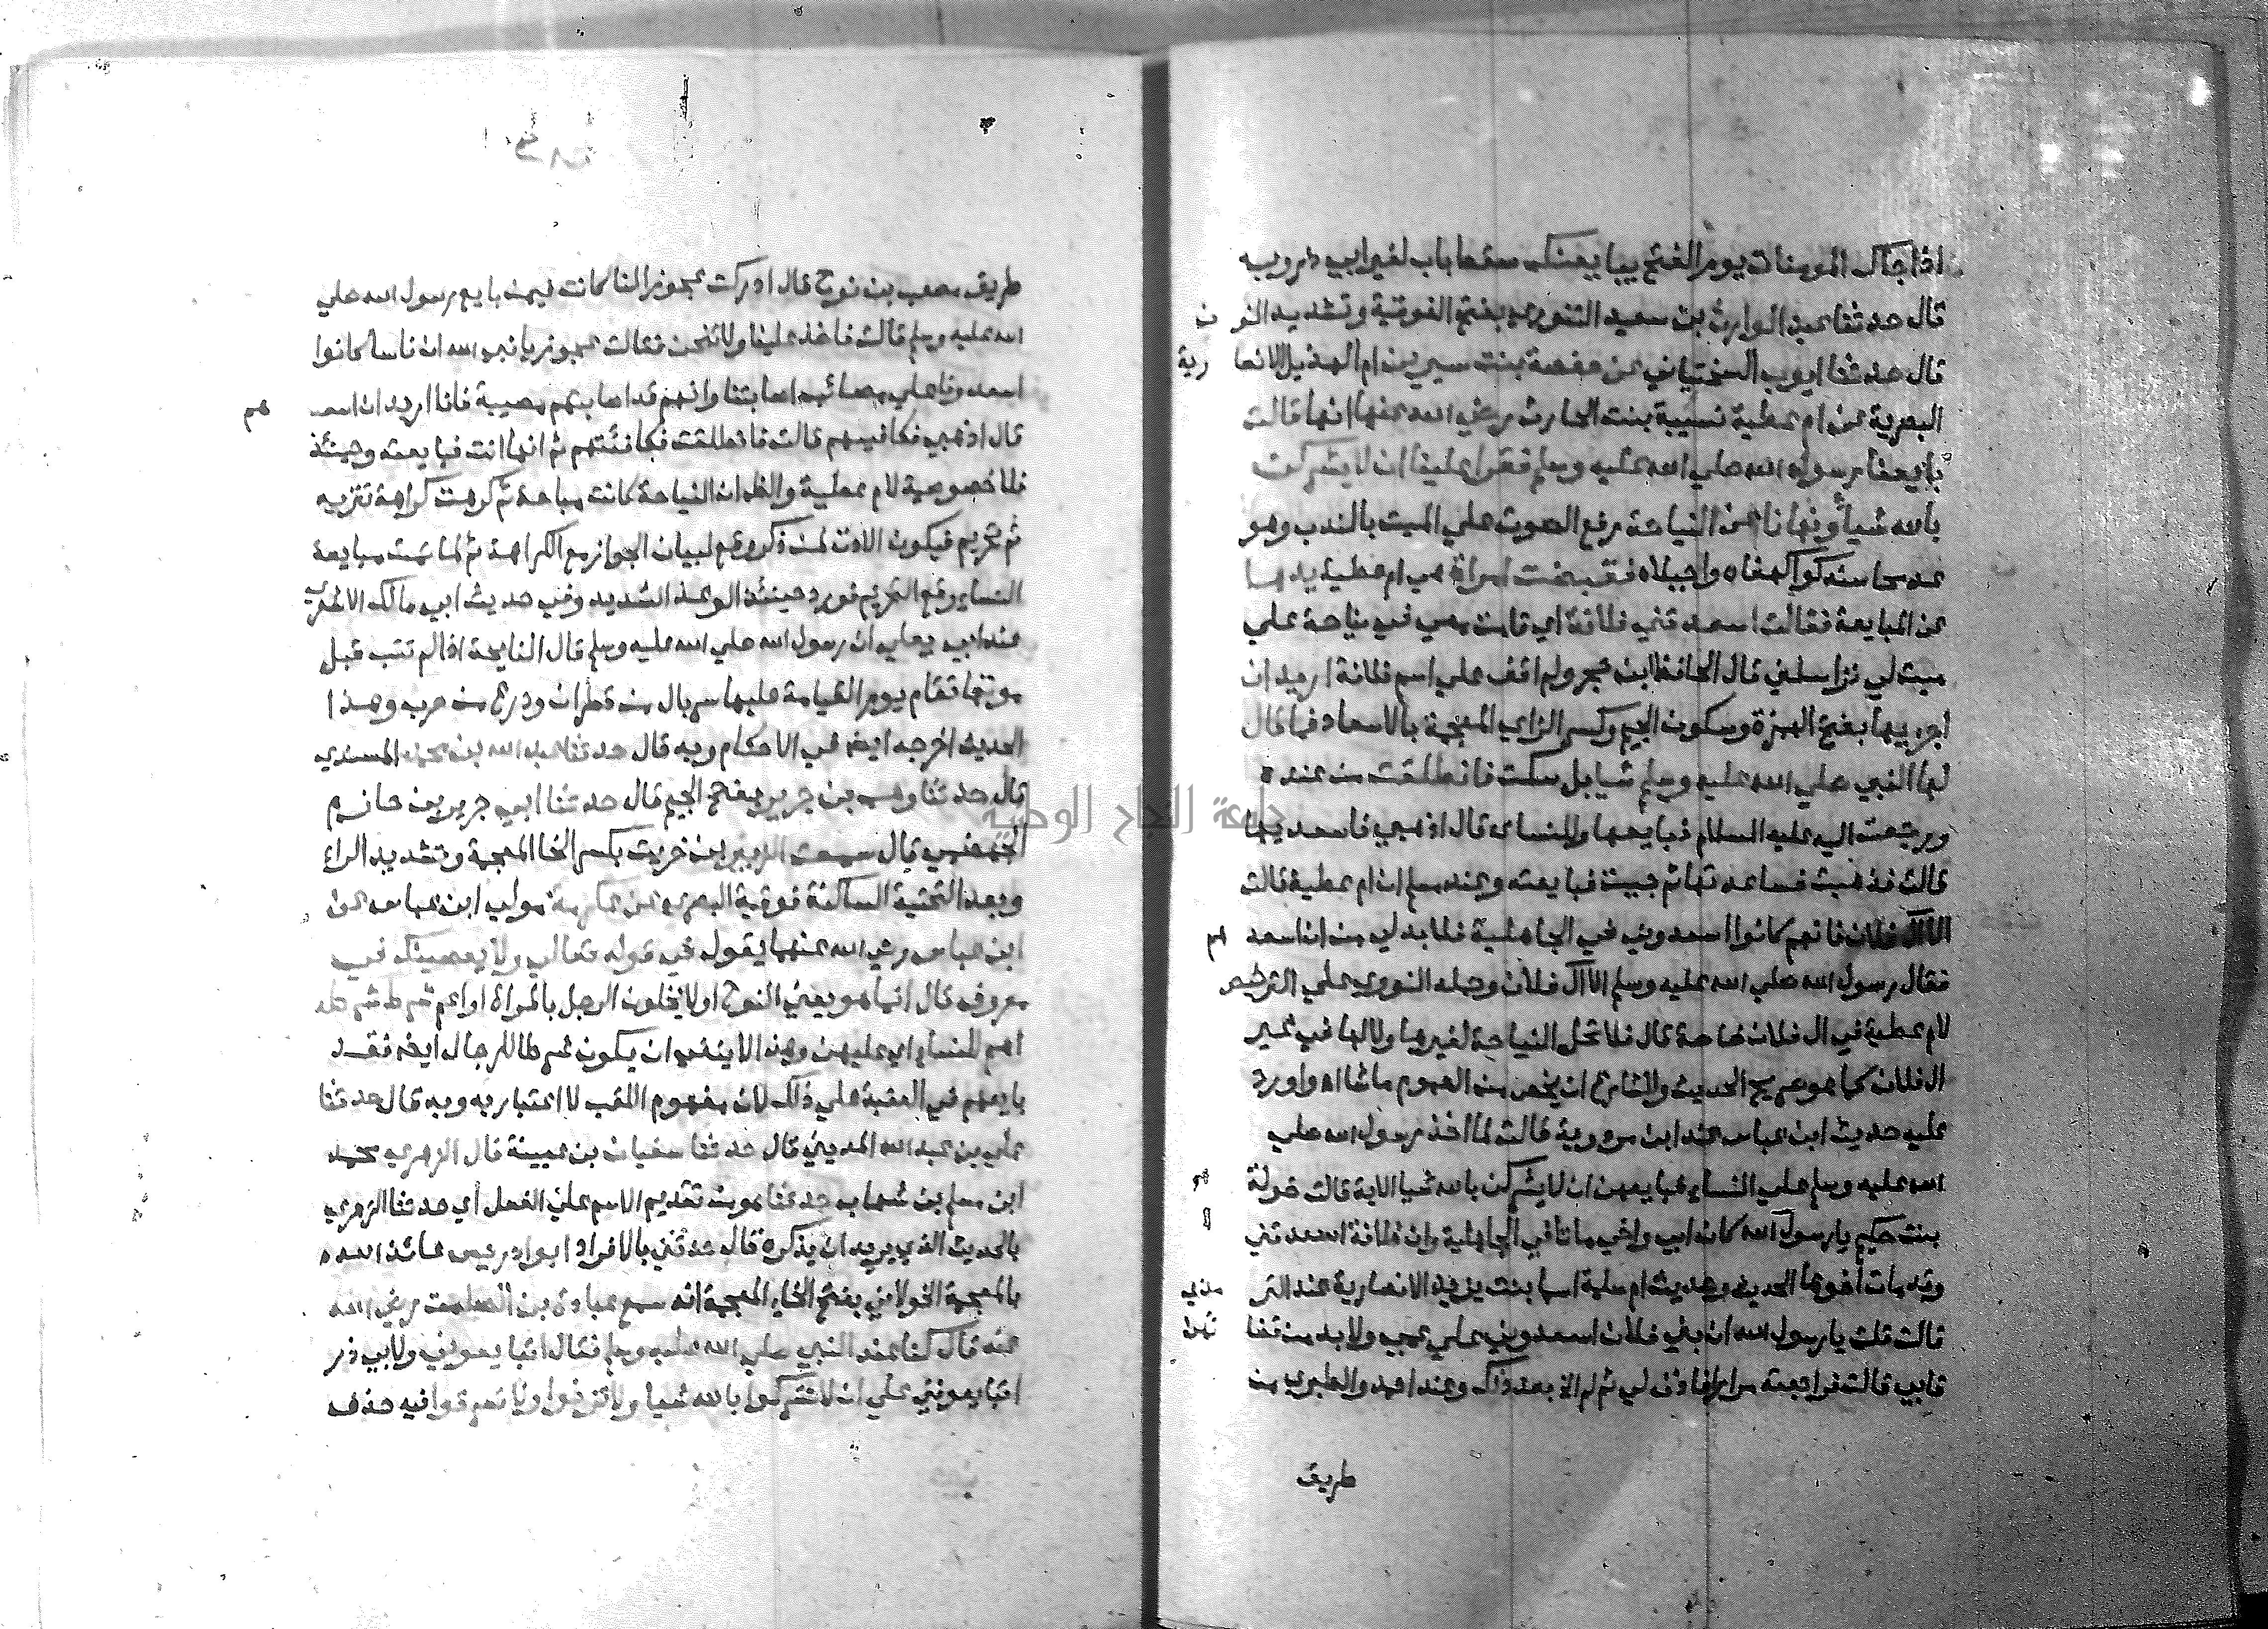 اذا جاك المومنات يوم الفتح يبايعنك سقط باب لغير ابي ذر وبه
قال حدثنا عبد الوارث بن سعيد التنوري بفتح الفوقية وتشديد النون
قال حدثنا ايوب السختياني عن حفصة بنت سيرين ام الهذيل الانصارية
البصرية عن ام عطية نسيبة بنت الحارث رضي الله عنها انها قالت
بايعنا رسول الله صلي الله عليه وسلم فقرا علينا ان لا يشركن
بالله شياً ونهانا عن النياحة رفع الصوت علي الميت بالندب وهو
عد محاسنه كواكهفاه واجبلاه فقبضت امراة هي ام عطية يدها
عن المبايعة فقالت اسعدتني فلانة اي قامت معي في نياحة علي
ميت لي تراسلني قال الحافظ ابن حجر ولم اقف علي اسم فلانة اريد ان
اجزيها بفتح الهمزة وسكون الجيم وكسر الزاي المعجمة بالاسعاد فما قال
لها النبي صلي الله عليه وسلم شيا بل سكت فانطلقت من عنده
ورجعت اليه عليه السلام فبايعها وللنساي قال اذهبي فاسعديها
قالت فذهبت فساعدتها ثم جيت فبايعته وعند مسلم ان ام عطية قالت
الا ال فلان فانهم كانوا اسعدوني في الجاهلية فلا بد لي من ان اسعدهم
فقال رسول الله صلي الله عليه وسلم الا ال فلان وحمله النووي علي الترخيص
لام عطية في ال فلان خاصة قال فلا تحل النياحة لغيرها ولا لها في غير
ال فلان كما هو صريح الحديث وللشارع ان يخص من العموم ما شا اه واورد
عليه حديث ابن عباس عند ابن مردوية قالت لما اخذ رسول الله صلي
الله عليه وسلم علي النساء فبايعهن ان لا يشركن بالله شيا الاية قالت خولة
بنت حكيم يا رسول الله كان ابي واخي ماتا في الجاهلية وان فلانة اسعدتني
وقد مات اخوها الحديث وحديث ام سلمة اسما بنت يزيد الانصارية عند الترمذي
قالت قلت يا رسول الله ان بني فلان اسعدوني علي عمي ولا بد من قضائهن
فابي قالت فراجعته مرارا فاذن لي ثم لم انح بعد ذلك وعند احمد والطبري من
طريق
طريق مصعب بن نوح قال ادركت عجوزا لنا كانت فيمن بايع رسول الله صلي
الله عليه وسلم قالت فاخذ علينا ولا ننحن فقالت عجوز يا نبي الله ان ناسا كانوا
اسعدونا علي مصائب اصابتنا وانهم قد اصابتهم مصيبة فانا اريد ان اسعدهم
قال اذهبي فكافيهم قالت فانطلقت فكافئتهم ثم انها اتت فبايعته وحينئذ
فلا خصوصية لام عطية والظ ان النياحة كانت مباحة ثم كرهت كراهة تنزيه
ثم تحريم فيكون الاذن لمن ذكر وقع لبيان الجواز مع الكراهة ثم لما تمت مبايعة
النساء وقع التحريم فورد حينئذ الوعيد الشديد وفي حديث ابي مالك الاشعري
عند ابي يعلي ان رسول الله صلي الله عليه وسلم قال النايحة اذا لم تتب قبل
موتها تقام يوم القيامة عليها سربال من قطران ودرع من جرب وهذا
الحديث اخرجه ايضا في الاحكام وبه قال حدثنا عبد الله بن محمد المسندي
قال حدثنا وهب بن جرير بفتح الجيم قال حدثنا ابي جرير بن حازم
الجهضمي قال سمعت الزبير بن خريت بكسر الخا المعجمة وتشديد الراء
وبعد التحتية الساكنة فوقية البصري عن عكرمة مولي ابن عباس عن
ابن عباس رضي الله عنهما يقول في قوله تعالي ولا يعصينك في
معروف قال انما هو يعني النوح او لا يخلون الرجل بالمراة او اعم شرط شرطه
الله للنساء اي عليهن وهذا لا ينفي ان يكون شرطا للرجال ايضا فقد
بايعهم في العقبة علي ذلك لان مفهوم اللقب لا اعتبار به وبه قال حدثنا
علي بن عبد الله المديني قال حدثنا سفيان بن عيينة قال الزهري محمد
ابن مسلم بن شهاب حدثناه من تقديم الاسم علي الفعل اي حدثنا الزهري
بالحديث الذي يريد ان يذكره قال حدثني بالافراد ابو ادريس عائذ الله
بالمعجمة الخولاني بفتح الخاء المعجمة انه سمع عبادة بن الصامت رضي الله
عنه قال كنا عند النبي صلي الله عليه وسلم فقال اتبايعوني ولابي ذر
اتبايعونني علي ان لا تشركوا بالله شيا ولا تزنوا ولا تسرقوا فيه حذف
جامعة النجاح الوطنية